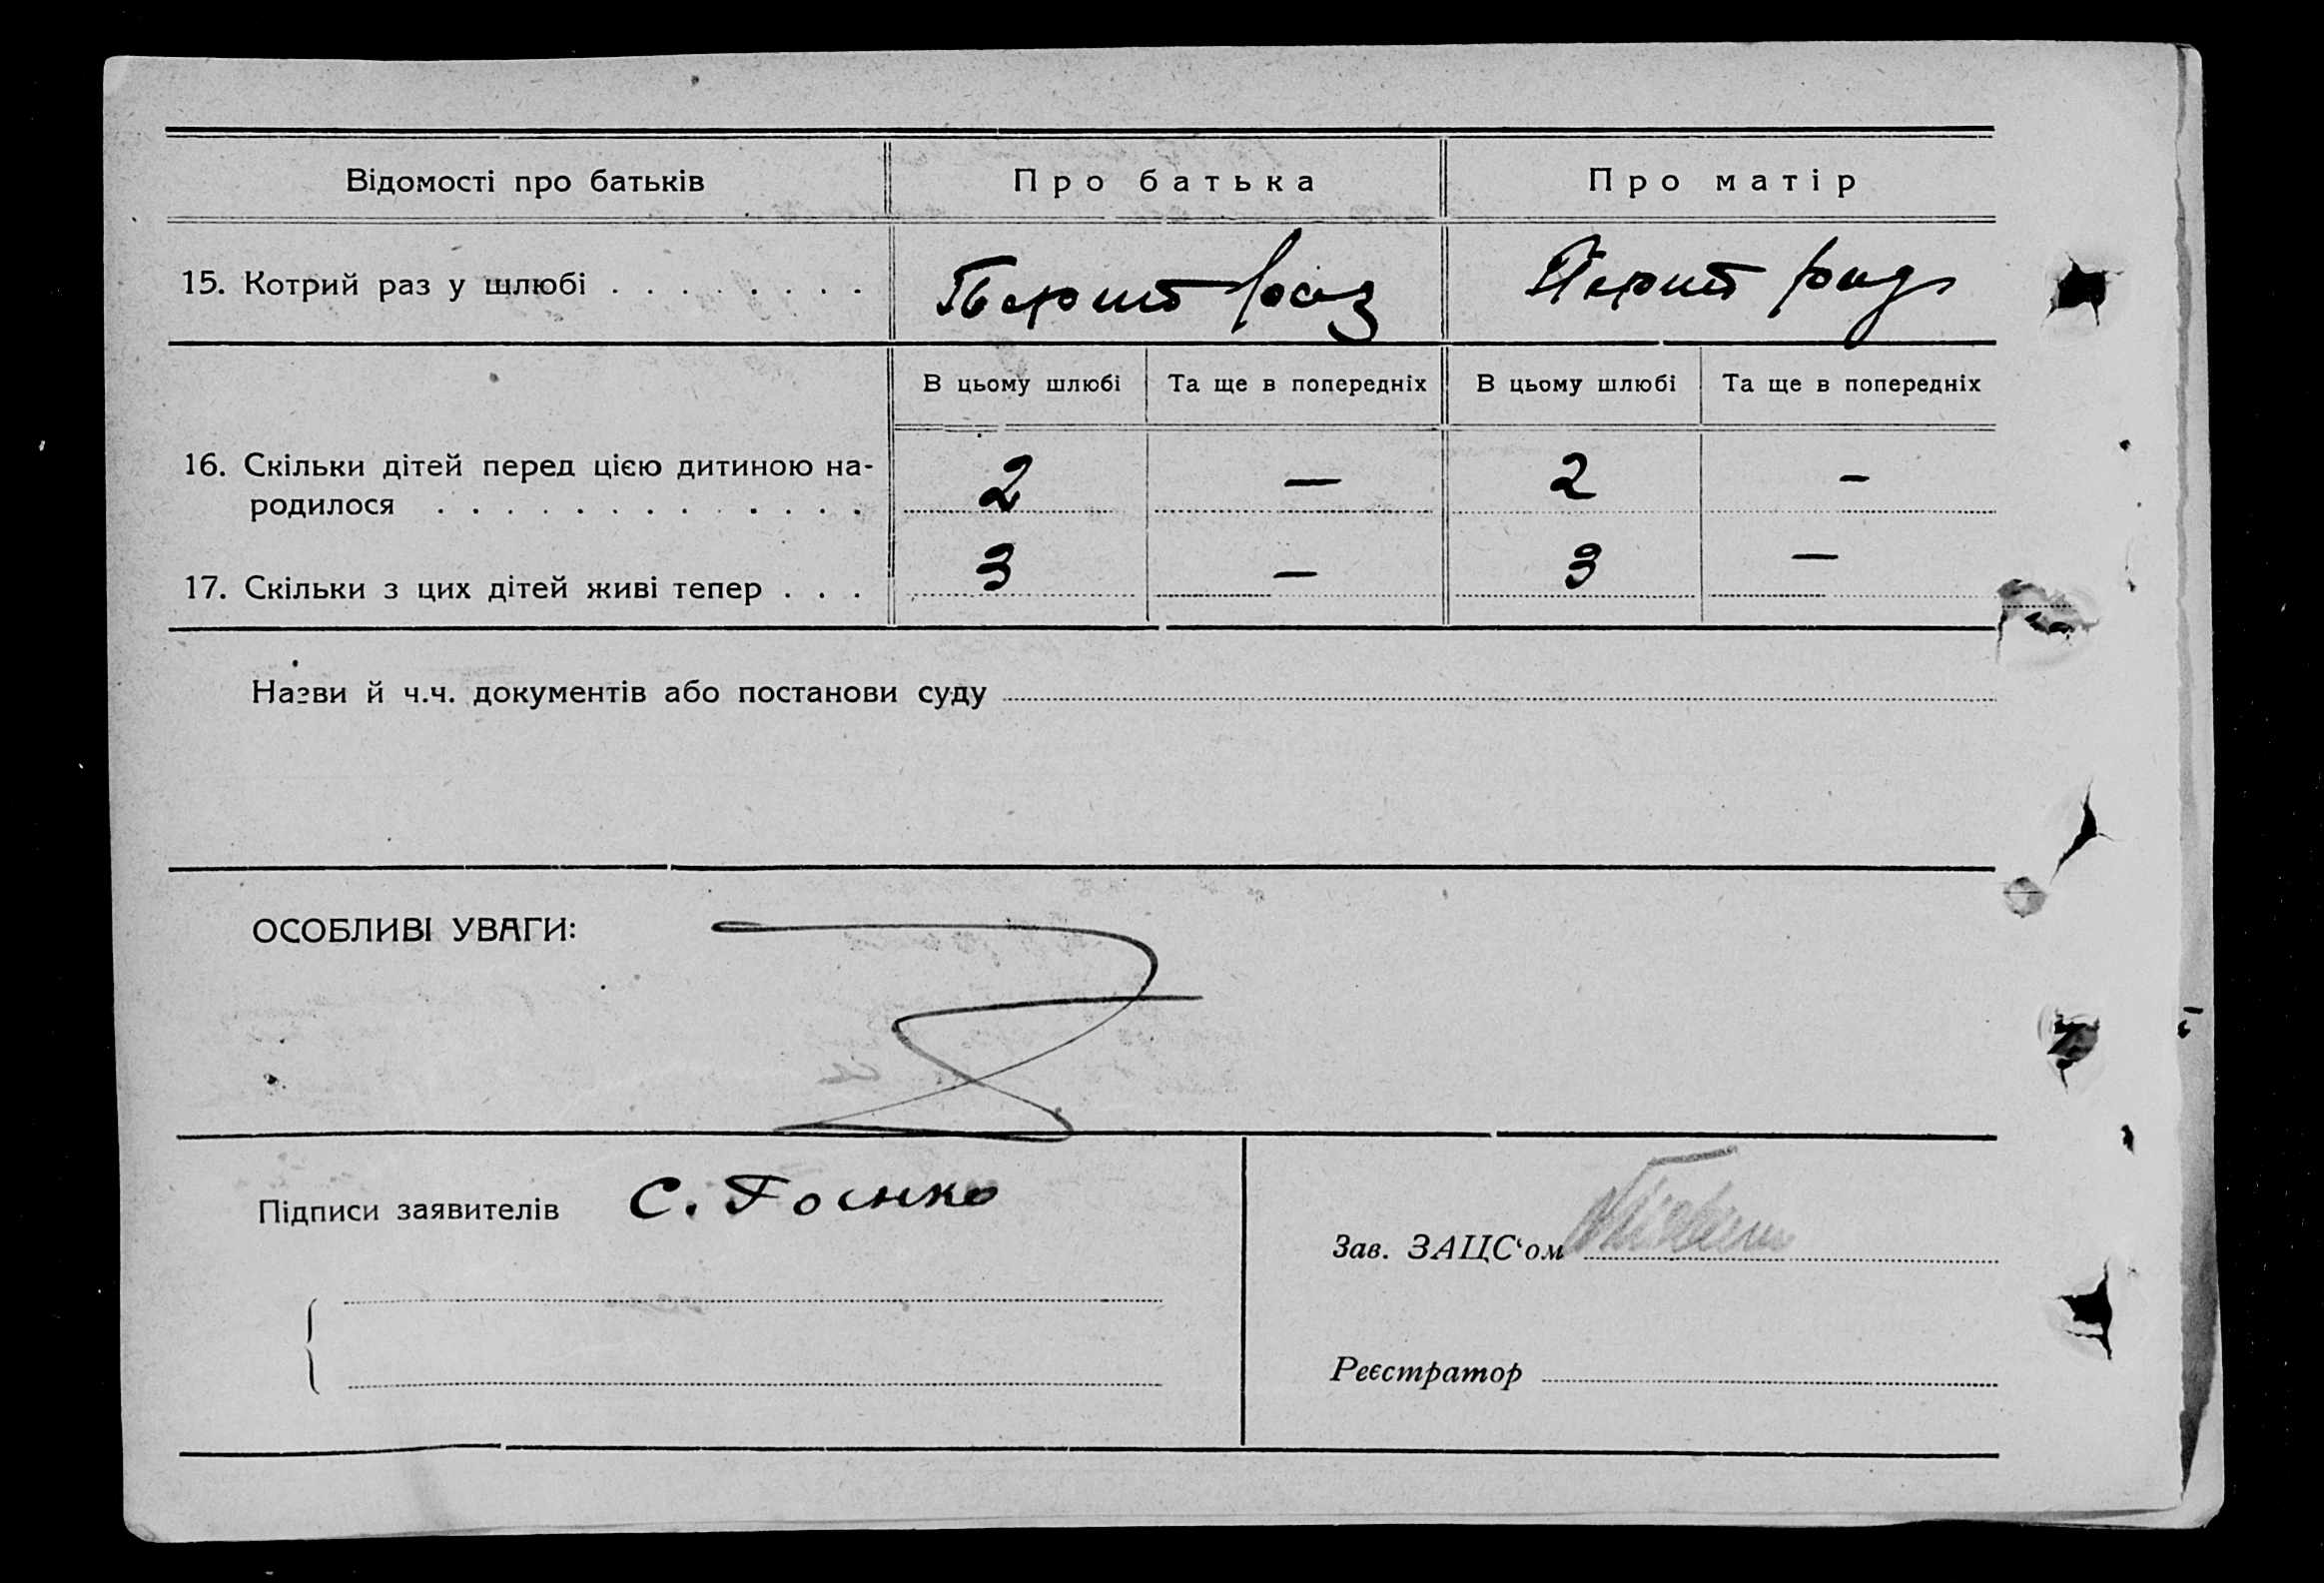 Відомості про батьків Про батька Про матір
15. Котрий раз у шлюбі . . . . . . . . Перший раз Перший раз
В цьому шлюбі Та ще в попередніх В цьому шлюбі Та ще в попередніх
16. Скільки дітей перед цією дитиною на-
родилося . . . . . . . . . . . . . 2 — 2 –
17. Скільки з цих дітей живі тепер . . . 3 — 3 —
Назви й ч.ч. документів або постанови суду
ОСОБЛИВІ УВАГИ:
Підписи заявителів С.
Зав. ЗАЦС‘ом
Реєстратор